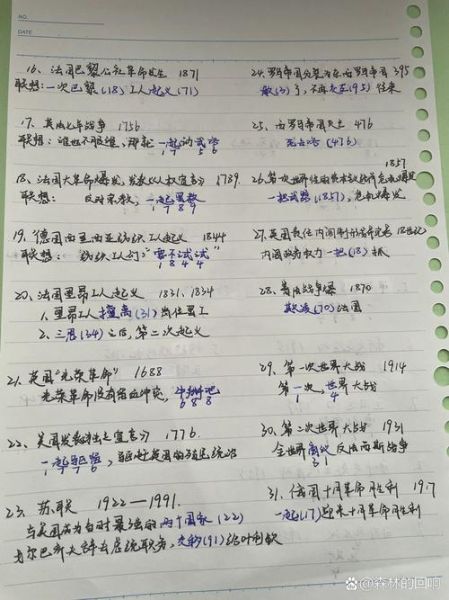 NO.
DATE
16、法国巴黎公社革命发生 1871
联想:一次巴黎(18)工人起义(71)
17、英法七年战争 1756
联想:谁也不服谁,那就一起的武学
1 7 5 6
18、法国大革命爆发,发表《人权宣言》1789
联想: 反对宗教,一起罢教
1 7 8 9
19、德国西里西亚纺织工人起义 1844
联想: 纺织工人们:“要不试试”
1 8 4 4
20、法国里昂工人起义 1831、1834
1、里昂工人擅离(31)岗位罢工
2、三思(34)之后,第二次起义
21、英国“光荣革命” 1688
光荣革命没有流血冲突,
6 8 8
22、美国发表《独立宣言》 1776.
一起驱赶,驱赶英国的殖民统治
1 7 7 6
23、苏联 1922—1991.
与美国成为当时最强的两个国家(22)
戈尔巴乔夫辞去总统职务,交移(91)给叶利钦
24、罗马帝国分裂为东西罗马帝国 395
散(3)了,不再友在(95)往来
25、西罗马帝国灭亡 476
(476)
26、第一次世界性的资本主义经济危机爆发 1857
一把武器(1857),危机爆发
27、英国责任内阁制形成 18世纪
内阁政府权力一把(18)抓
28、普法战争爆 1870
欺凌(70)法国
29、第一次世界大战 1914
第一次,世界大战
1 4
30、第二次世界大战 1931
全世界 反法西斯战争
3 1
31、俄国十月革命胜利 1917
一起(17)迎来十月革命胜利
@森林的回响